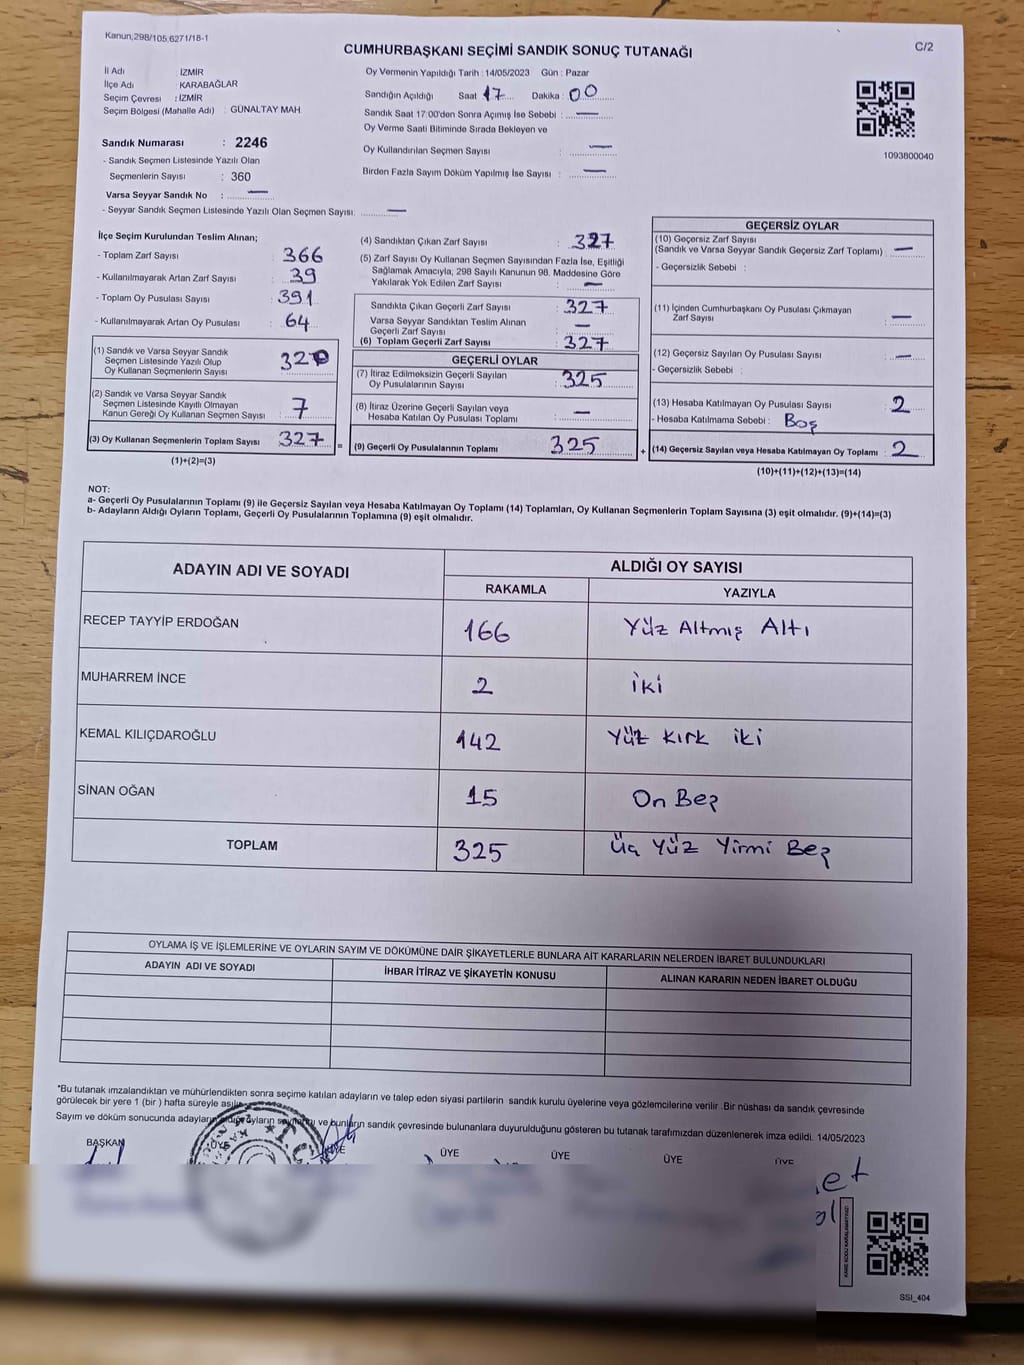 Kanun,298/105,6271/18-1
CUMHURBAŞKANI SEÇİMİ SANDIK SONUÇ TUTANAĞI
C/2
İl Adı : İZMİR
İlçe Adı : KARABAĞLAR
Seçim Çevresi : İZMİR
Seçim Bölgesi (Mahalle Adı) : GÜNALTAY MAH
Sandık Numarası : 2246
- Sandık Seçmen Listesinde Yazılı Olan
Seçmenlerin Sayısı : 360
Varsa Seyyar Sandık No : —
- Seyyar Sandık Seçmen Listesinde Yazılı Olan Seçmen Sayısı: —
Oy Vermenin Yapıldığı Tarih : 14/05/2023 Gün : Pazar
Sandığın Açıldığı Saat 17 Dakika : 00
Sandık Saat 17:00'den Sonra Açımış İse Sebebi : —
Oy Verme Saati Bitiminde Sırada Bekleyen ve
Oy Kullandırılan Seçmen Sayısı : —
Birden Fazla Sayım Döküm Yapılmış İse Sayısı : —
1093800040
İlçe Seçim Kurulundan Teslim Alınan;
- Toplam Zarf Sayısı : 366
- Kullanılmayarak Artan Zarf Sayısı : 39
- Toplam Oy Pusulası Sayısı : 391
- Kullanılmayarak Artan Oy Pusulası : 64
(1) Sandık ve Varsa Seyyar Sandık
Seçmen Listesinde Yazılı Olup
Oy Kullanan Seçmenlerin Sayısı : 320
(2) Sandık ve Varsa Seyyar Sandık
Seçmen Listesinde Kayıtlı Olmayan
Kanun Gereği Oy Kullanan Seçmen Sayısı : 7
(3) Oy Kullanan Seçmenlerin Toplam Sayısı : 327 =
(1)+(2)=(3)
(4) Sandıktan Çıkan Zarf Sayısı : 327
(5) Zarf Sayısı Oy Kullanan Seçmen Sayısından Fazla İse, Eşitliği
Sağlamak Amacıyla, 298 Sayılı Kanunun 98. Maddesine Göre
Yakılarak Yok Edilen Zarf Sayısı : —
Sandıkta Çıkan Geçerli Zarf Sayısı : 327
Varsa Seyyar Sandıktan Teslim Alınan
Geçerli Zarf Sayısı : —
(6) Toplam Geçerli Zarf Sayısı : 327
GEÇERLİ OYLAR
(7) İtiraz Edilmeksizin Geçerli Sayılan
Oy Pusulalarının Sayısı : 325
(8) İtiraz Üzerine Geçerli Sayılan veya
Hesaba Katılan Oy Pusulası Toplamı : —
(9) Geçerli Oy Pusulalarının Toplamı : 325 +
GEÇERSİZ OYLAR
(10) Geçersiz Zarf Sayısı
(Sandık ve Varsa Seyyar Sandık Geçersiz Zarf Toplamı) : —
- Geçersizlik Sebebi :
(11) İçinden Cumhurbaşkanı Oy Pusulası Çıkmayan
Zarf Sayısı : —
(12) Geçersiz Sayılan Oy Pusulası Sayısı : —
- Geçersizlik Sebebi :
(13) Hesaba Katılmayan Oy Pusulası Sayısı : 2
- Hesaba Katılmama Sebebi : Boş
(14) Geçersiz Sayılan veya Hesaba Katılmayan Oy Toplamı : 2
(10)+(11)+(12)+(13)=(14)
NOT:
a- Geçerli Oy Pusulalarının Toplamı (9) ile Geçersiz Sayılan veya Hesaba Katılmayan Oy Toplamı (14) Toplamları, Oy Kullanan Seçmenlerin Toplam Sayısına (3) eşit olmalıdır. (9)+(14)=(3)
b- Adayların Aldığı Oyların Toplamı, Geçerli Oy Pusulalarının Toplamına (9) eşit olmalıdır.
ADAYIN ADI VE SOYADI ALDIĞI OY SAYISI
RAKAMLA YAZIYLA
RECEP TAYYİP ERDOĞAN 166 Yüz Altmış Altı
MUHARREM İNCE 2 iki
KEMAL KILIÇDAROĞLU 142 Yüz Kırk iki
SİNAN OĞAN 15 On Beş
TOPLAM 325 Üç Yüz Yirmi Beş
OYLAMA İŞ VE İŞLEMLERİNE VE OYLARIN SAYIM VE DÖKÜMÜNE DAİR ŞİKAYETLERLE BUNLARA AİT KARARLARIN NELERDEN İBARET BULUNDUKLARI
ADAYIN ADI VE SOYADI İHBAR İTİRAZ VE ŞİKAYETİN KONUSU ALINAN KARARIN NEDEN İBARET OLDUĞU
*Bu tutanak imzalandıktan ve mühürlendikten sonra seçime katılan adayların ve talep eden siyasi partilerin sandık kurulu üyelerine veya gözlemcilerine verilir .Bir nüshası da sandık çevresinde
görülecek bir yere 1 (bir ) hafta süreyle asılır.
Sayım ve döküm sonucunda adayların aldığı oyların sayısını ve bunların sandık çevresinde bulunanlara duyurulduğunu gösteren bu tutanak tarafımızdan düzenlenerek imza edildi. 14/05/2023
BAŞKAN ÜYE ÜYE ÜYE ÜYE ÜYE
SSİ_404